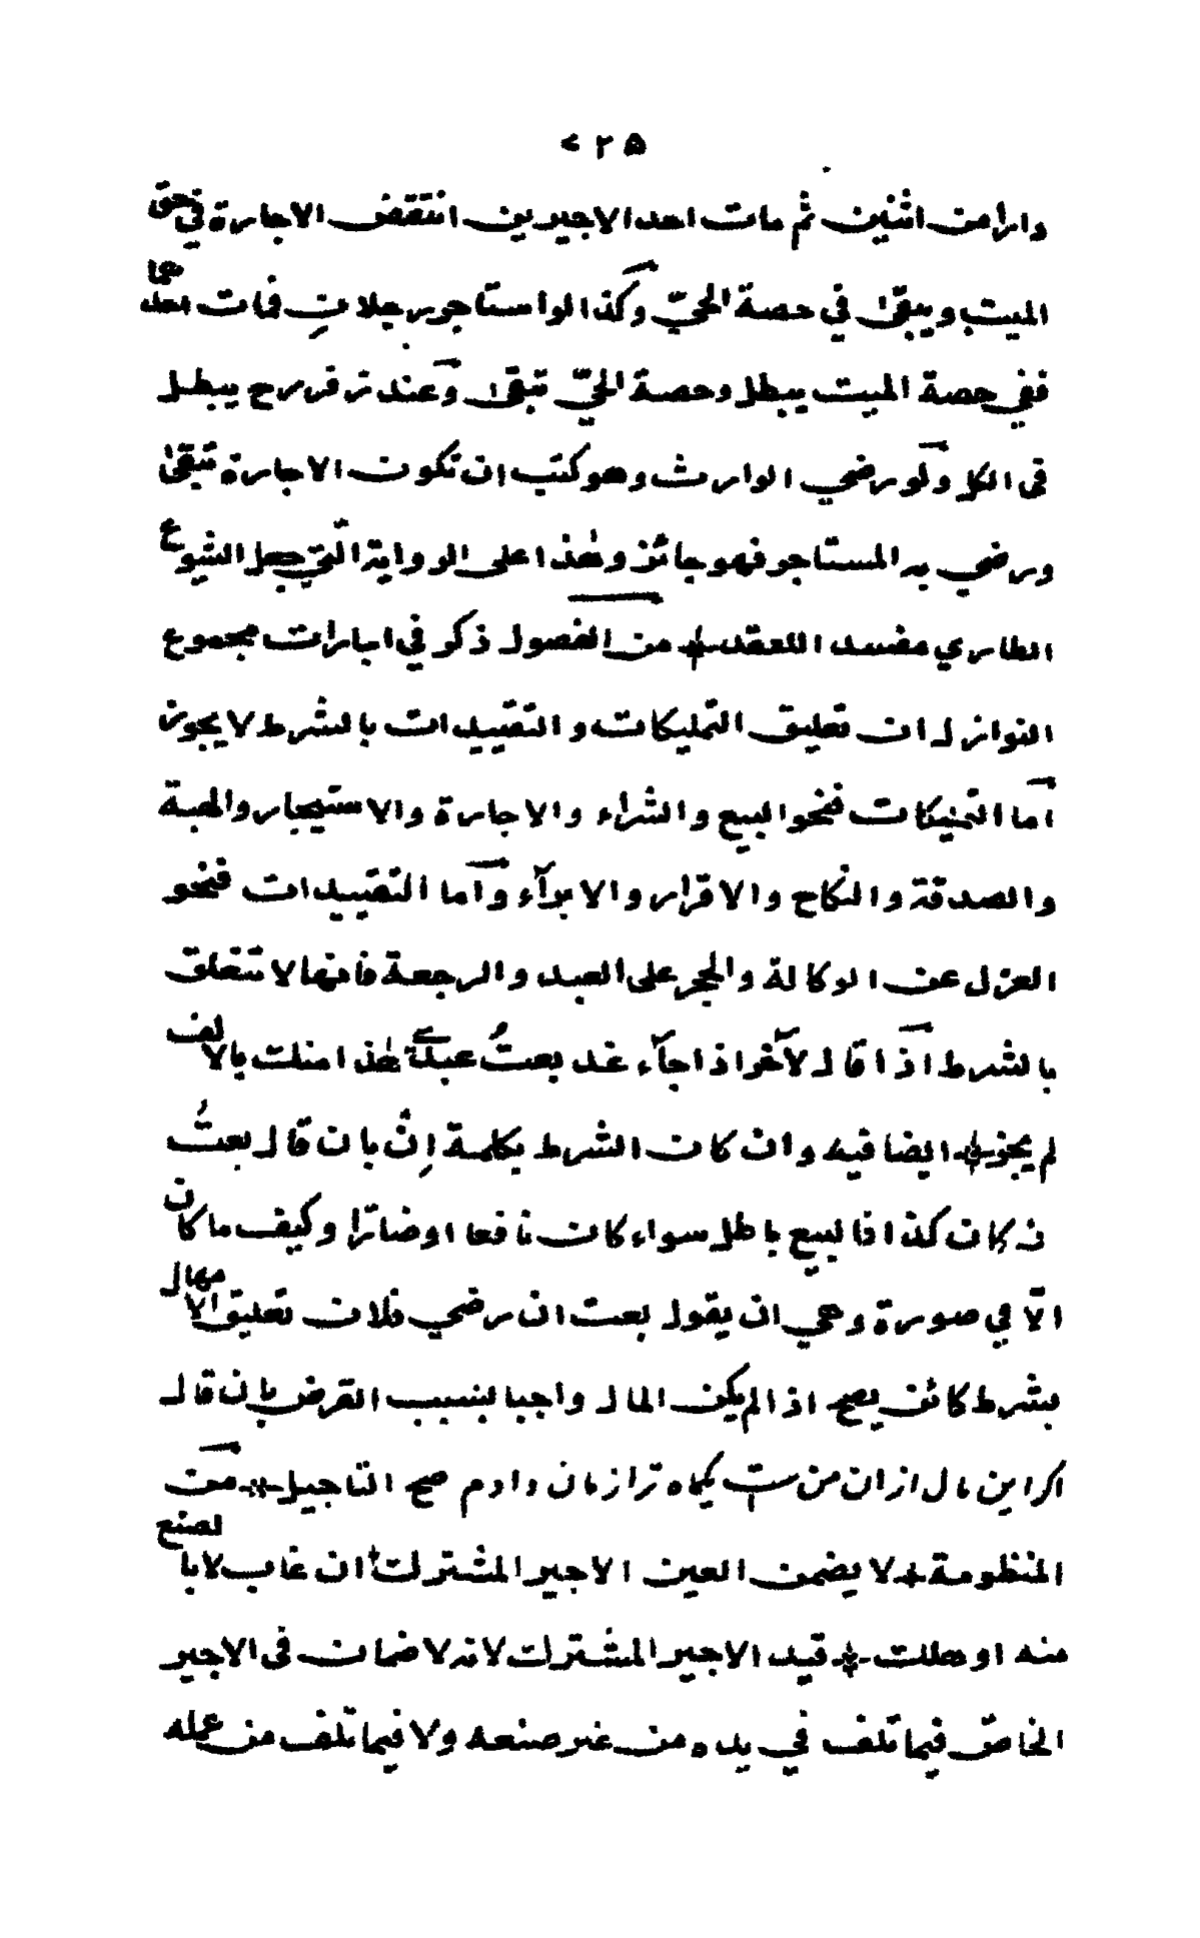 < ٢٥
دارا من اثنين ثم مات احد الاجيرين انتقض الاجارة في حق
الميت ويبقى في حصة الحيّ وكذا لو استاجر رجلانِ فمات احدهما
ففي حصة الميت يبطل وحصة الحيّ تبقى وعند زفر رح يبطل
فى الكل ولو رضي الوارث وهو كتب ان تكون الاجارة تبقى
ورضي به المستاجر فهو جائز وهذا على الرواية التي جعل الشيوع
الطاري مفسد اللعقد من الفصول ذكر في اجارات مجموع
النوازل ان تعليق التمليكات و التقييدات بالشرط لا يجوز
اما التمليكات فنحو البيع والشراء والاجارة والاستيجار والهبة
والصدقة والنكاح والاقرار والابرآء واما التقييدات فنحو
العزل عن الوكالة والحجر على العبد والرجعة فانها لا تتعلق
بالشرط اذا قال لآخر اذا جآء غد بعتُ عبدي هذا منك بالالف
لم يجز ايضا فيه وان كان الشرط بكلمة اِنْ بان قال بعتُ
ان كان كذا فالبيع باطل سواء كان نافعا او ضارّا وكيف ما كان
الّا في صورة وهي ان يقول بعت ان رضي فلان تعليق الامهال
بشرط كائن يصح اذا لم يكن المال واجبا بسبب القرض بان قال
اكر اين مال ازان من ست يكماه ترا زمان دادم صح التاجيل من
المنظومة لا يضمن العين الاجير المشترك ان غاب لا بالصنع
منه او هلك قيد الاجير المشترك لانه لا ضمان فى الاجير
الخاصّ فيما تلف في يده من غير صنعه ولا فيما تلف من عمله